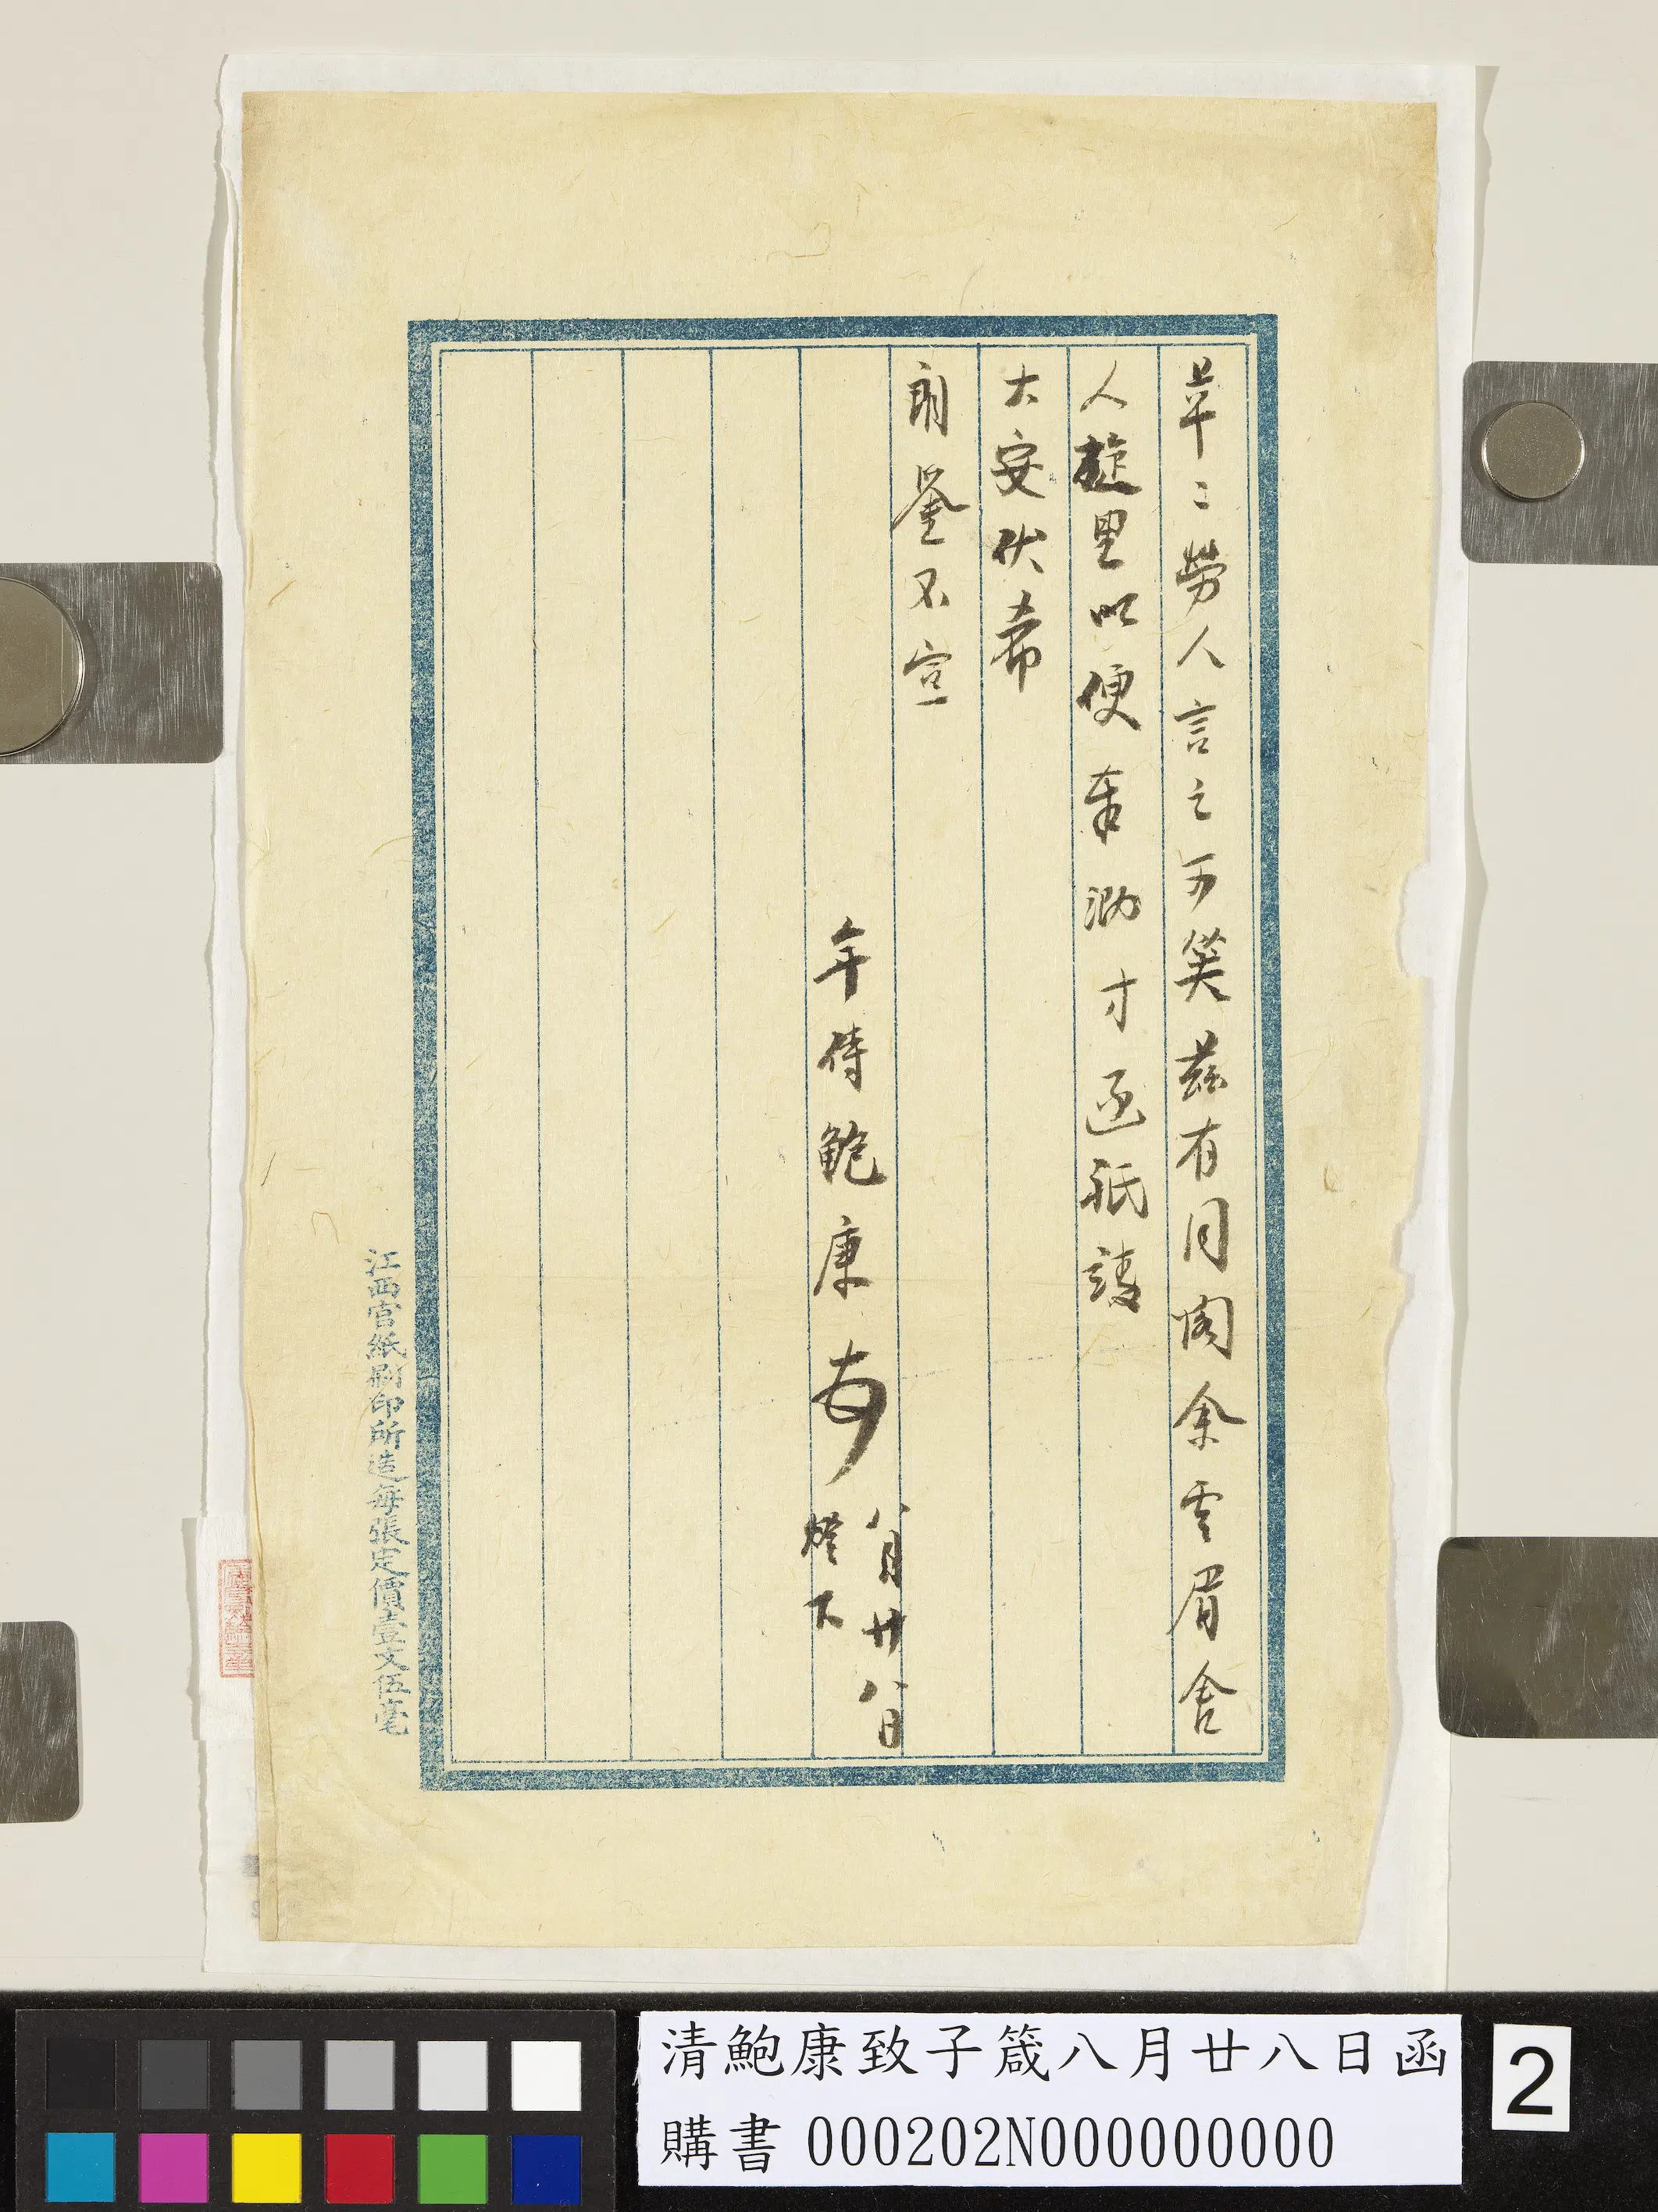 草〻勞人言之可笑茲有同閣余雲眉舍
人旋里以便奉泐寸函祇請
大安伏希
朗鑒不宣
年侍鮑康
八月廿八日
燈下
江西官紙刷印所造每張定價壹文伍毫
清鮑康致子箴八月廿八日函
購書 000202N000000000
2